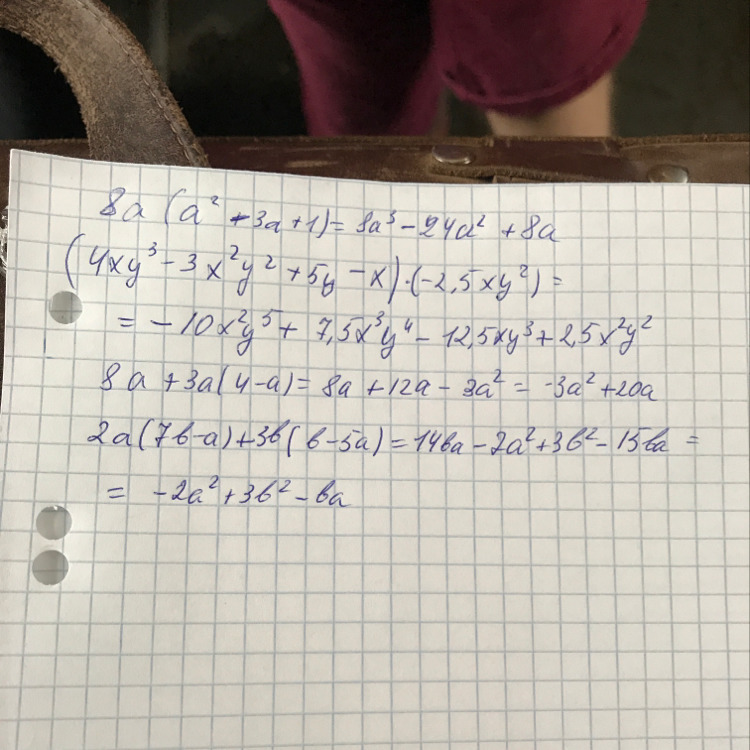 8a (a² - 3a + 1) = 8a³ - 24a² + 8a
(4xy³ - 3x²y² + 5y - x) · (-2,5xy²) =
= - 10x²y⁵ + 7,5x³y⁴ - 12,5xy³ + 2,5x²y²
8a + 3a(4-a) = 8a + 12a - 3a² = -3a² + 20a
2a(7b-a) + 3b(b-5a) = 14ba - 2a² + 3b² - 15ba =
= -2a² + 3b² - ba